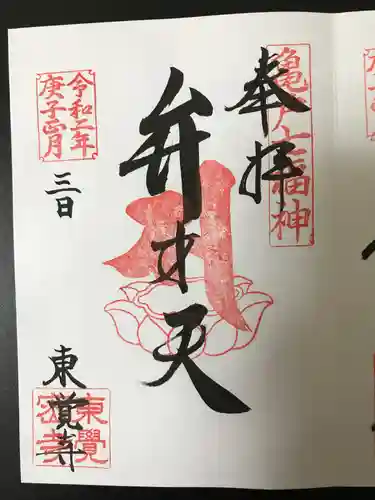 亀戸七福神
奉拝
弁才天
令和二年
庚子正月
三日
東覚寺
東覺
密寺